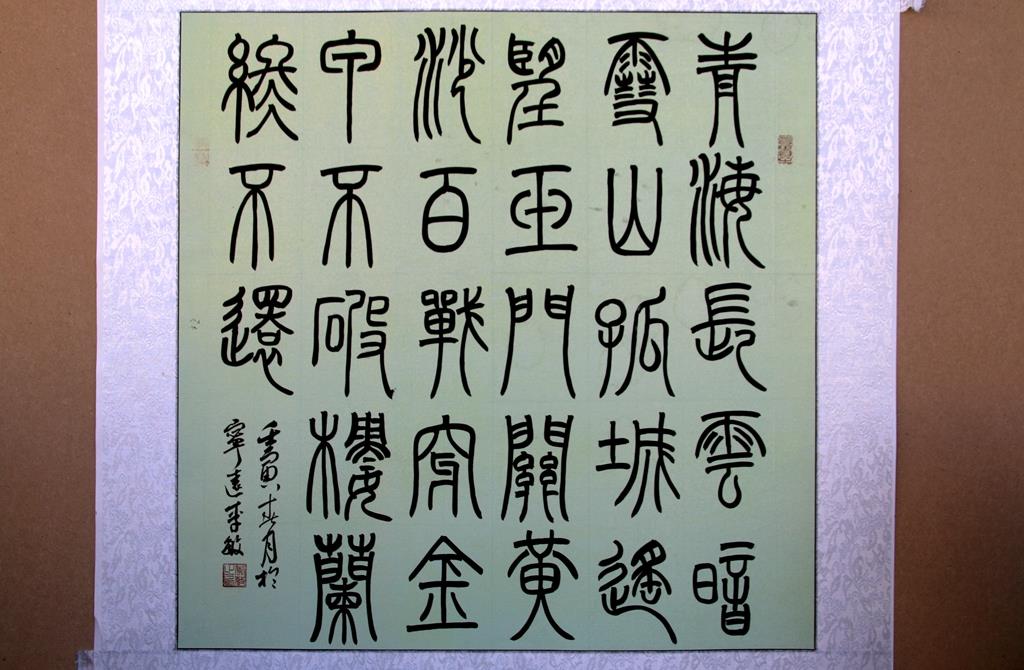 青海長雲暗
雪山孤城遙
望玉門關黃
沙百戰穿金
甲不破樓蘭
終不還
壬寅春月於
寧遠李敏